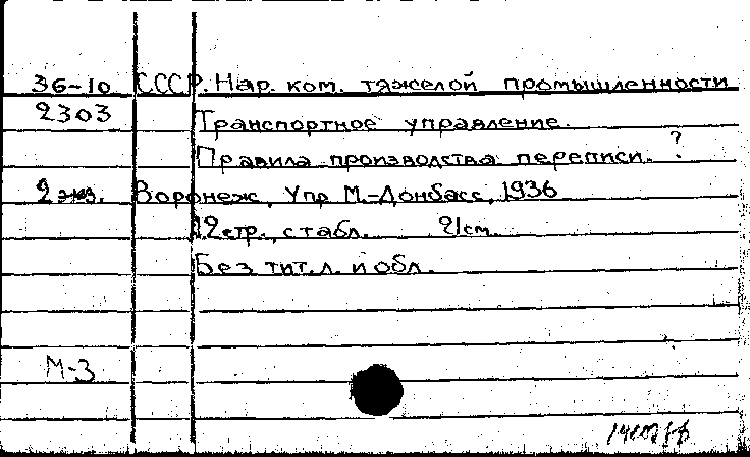 36-10 СССР. Нар. ком. тяжелой промышленности
2303 Транспортное управление.
Правила производства переписи. ?
2 экз. Воронеж, Упр М.-Донбасс, 1936
12 стр., с табл. 21см.
Без тит. л. и обл.
М-3